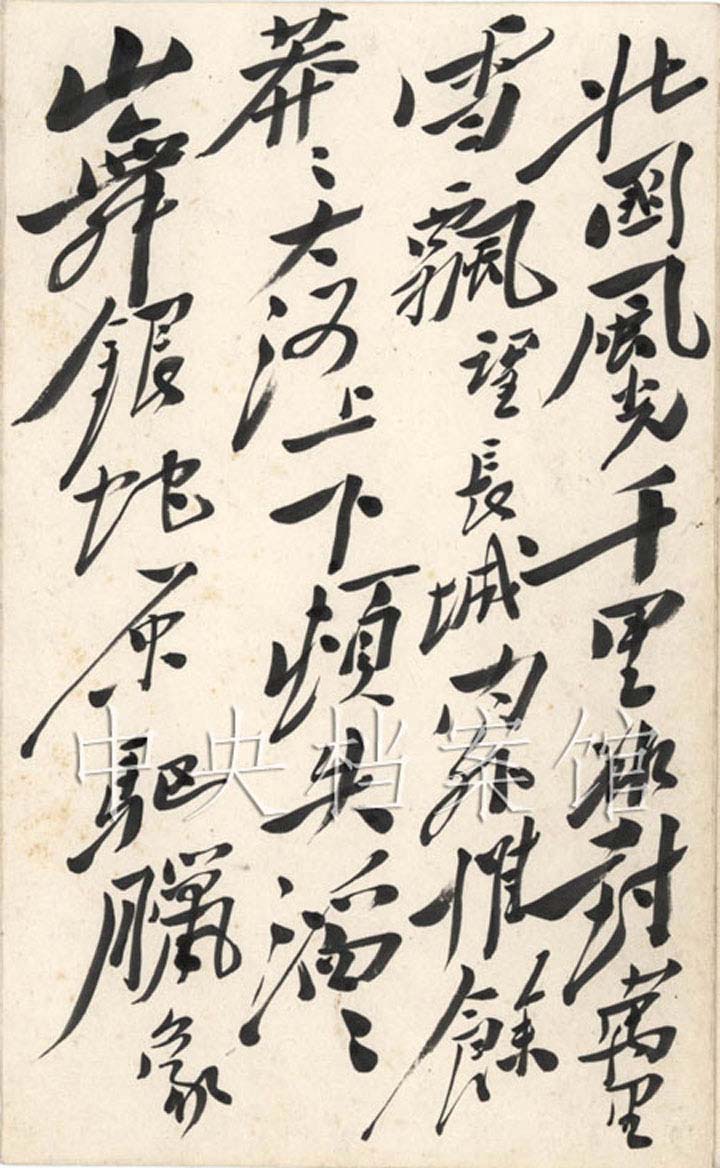 北國風光千里冰封萬里
雪飄望長城內外惟餘
莽〻大河上下頓失滔〻
山舞銀蛇原驅臘象
中央档案馆